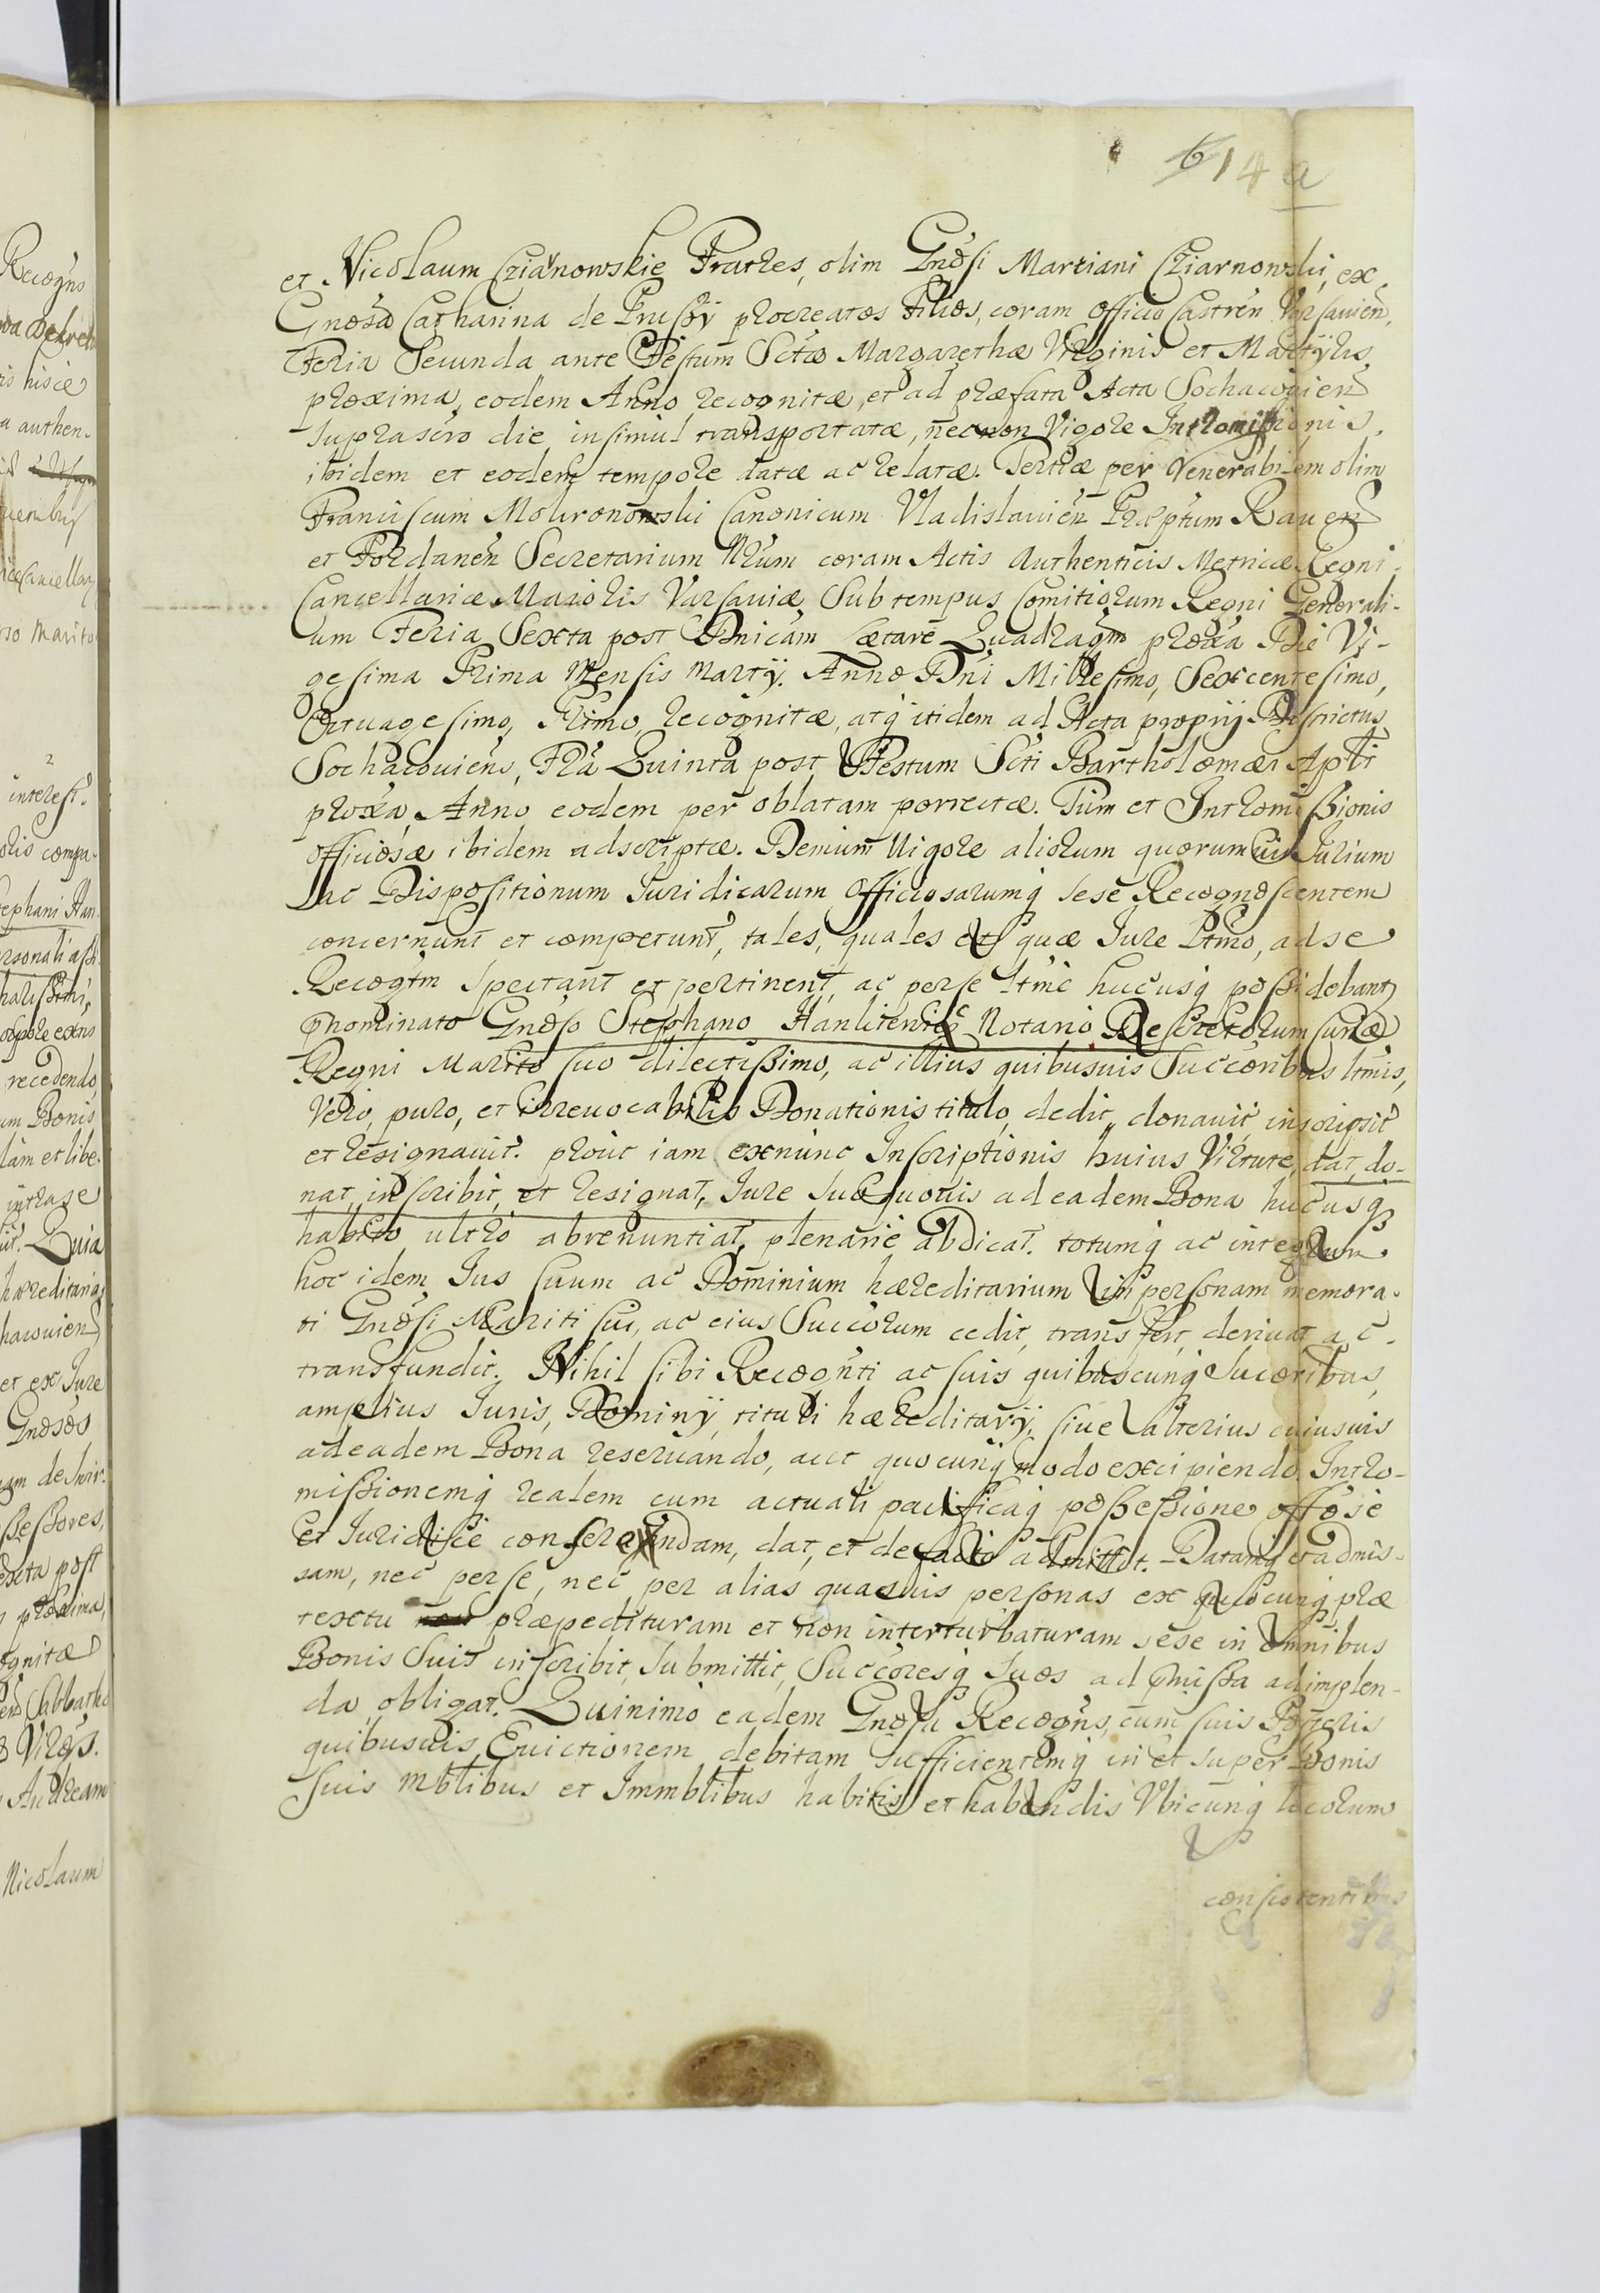 614 a
et Nicolaum Cziarnowskie Fratres, olim Gnosi Marciani Cziarnowski, ex
Gnosa Catharina de Prussy procreatos Filios, coram Officio Castren Varsavien,
Feria Secunda ante Festum Sctæ Margarethæ Virginis et Martyris
proxima, eodem Anno recognitæ, et ad præfata Acta Sochacovien
suprascro die insimul transportatæ, necnon Vigore Intromissionis,
ibidem et eodem tempore datæ ac relatæ. Tertiæ per Venerabilem olim
Franciscum Mokronowski Canonicum Vladislavien Præptum Raven
et Pordanen Secretarium Nrum coram Actis Authenticis Metricæ Regni
Cancellariæ Maioris Varsaviæ Sub tempus Comitiorum Regni Generali-
um Feria Sexta post Dnicam Lætare Quadragm proxa Die Vi-
gesima Prima Mensis Martij. Anno Dni Millesimo, Sexcentesimo,
Octuagesimo, Primo, recognitæ, atq itidem ad Acta proprij Districtus
Sochacoviens, Fra Quinta post Festum Scti Bartholomæi Apli
proxa, Anno eodem per oblatam porrectæ. Tum et Intromissionis
officiosæ ibidem adscriptæ. Demum Vigore aliorum quorumvis Jurium
ac Dispositionum Juridicarum Officiosarumq sese Recognoscentem
concernunt et competunt, tales, quales et quæ Jure Ltmo, ad se
Recogtm spectant et pertinent, ac per se ltmè hucusq possidebant,
pnominato Gnoso Stephano Hankiewicz Notario Decretorum Curiæ
Regni Marito suo dilectissimo, ac illius quibusvis Succoribus ltmis,
Vero, puro, et irrevocabilis Donationis titulo, dedit, donavit, inscripsit
et resignavit. prout iam exnunc Inscriptionis huius Virtute, dat, do-
nat, inscribit, et resignat, Jure suo quovis ad eadem Bona hucusq
habito ultro abrenuntiat, plenarie abdicat. totumq ac integrum
hoc idem Jus suum ac Dominium hæreditarium in personam memora-
ti Gnosi Mariti sui, ac eius Succorum cedit, transfert, derivat ac
transfundit. Nihil sibi Recognti ac suis quibuscunq Succoribus,
amplius Juris, Dominij, tituli hæreditarij, sive alterius cuiusvis
ad eadem Bona reservando, aut quocunq modo excipiendo. Intro-
missionemq realem cum actuali pacificaq possessione offose
et Juridice conferendam, dat, et de facto admittit. Datamq et admis-
sam, nec per se, nec per alias quasvis personas ex quocunq præ
textu præpedituram et non interturbaturam sese in omnibus
Bonis Suis inscribit, submittit, Succoresq suos ad pmissa adimplen-
da obligat. Quinimo eadem Gnosa Recogns, cum suis Posteris
quibusvis Evictionem debitam sufficientemq in et super Bonis
suis Mblibus et Immblibus habitis et habendis Vbicunq locorum
consistentibus